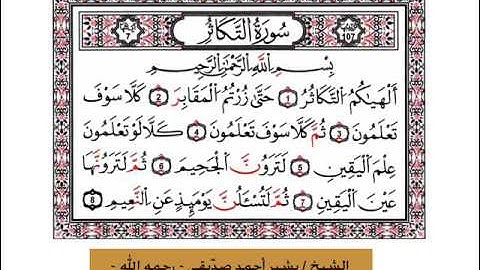 سُورَةُ التَّكَاثُرِ
107
7
بِسْمِ اللَّهِ الرَّحْمَٰنِ الرَّحِيمِ
أَلْهَىٰكُمُ التَّكَاثُرُ 1 حَتَّىٰ زُرْتُمُ الْمَقَابِرَ 2 كَلَّا سَوْفَ
تَعْلَمُونَ 3 ثُمَّ كَلَّا سَوْفَ تَعْلَمُونَ 4 كَلَّا لَوْ تَعْلَمُونَ
عِلْمَ الْيَقِينِ 5 لَتَرَوُنَّ الْجَحِيمَ 6 ثُمَّ لَتَرَوُنَّهَا
عَيْنَ الْيَقِينِ 7 ثُمَّ لَتُسْـَٔلُنَّ يَوْمَئِذٍ عَنِ النَّعِيمِ 8
الشيخ / بشير أحمد صدّيقي - رحمه الله -